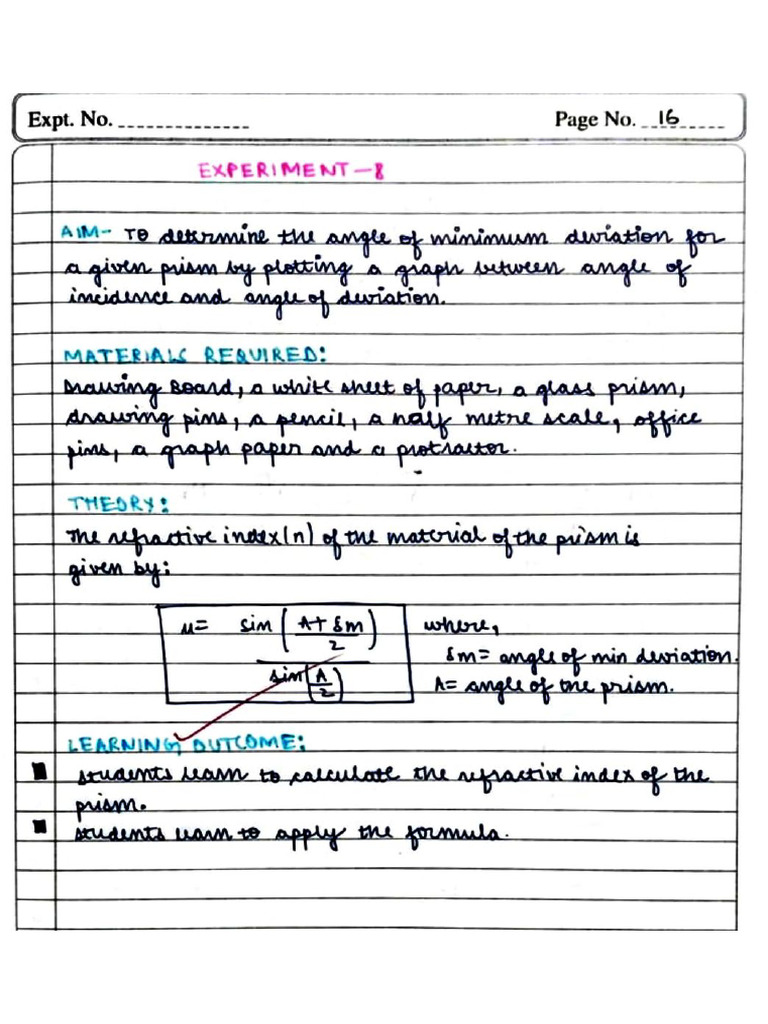 Expt. No.
Page No. 16
EXPERIMENT-8
AIM- TO determine the angle of minimum deviation for
a given prism by plotting a graph between angle of
incidence and angle of deviation.
MATERIALS REQUIRED:
Drawing Board, a white sheet of paper, a glass prism,
drawing pins, a pencil, a half metre scale, office
pins, a graph paper and a protractor.
THEORY:
The refractive index(n) of the material of the prism is
given by:
μ= sin (A+δm/2) / sin(A/2) where,
δm= angle of min deviation.
A= angle of the prism.
LEARNING OUTCOME:
students learn to calculate the refractive index of the
prism.
students learn to apply the formula.